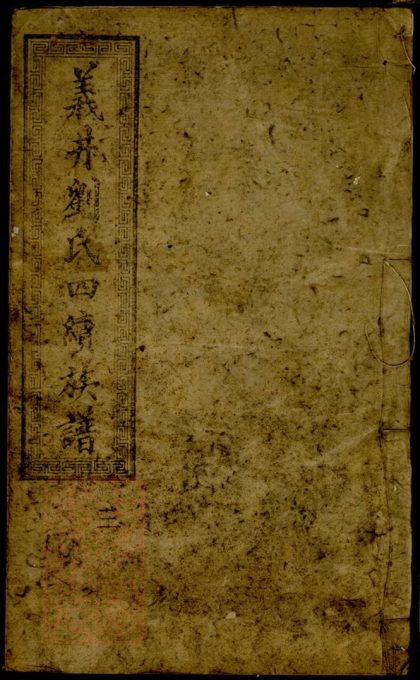 義井劉氏四續族譜
三